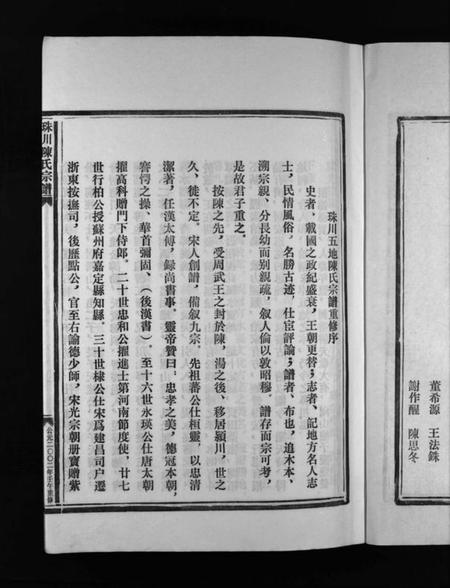 董希源 王法銖
謝作醒 陳思冬
珠川五地陳氏宗譜重修序
史者、載國之政紀盛衰，王朝更替；志者、記地方名人志
士，民情風俗，名勝古迹，仕宦評論；譜者、布也，追木本、
溯宗親、分長幼而别親疏，叙人倫以敦昭穆。譜存而宗可考，
是故君子重之。
按陳之先，受周武王之封於陳，湯之後、移居潁川，世之
久，徙不定。宋人創譜，備叙九宗，先祖蕃公仕桓靈，以忠清
潔著，任漢太傅，録尚書事。靈帝贊曰：忠孝之美，德冠本朝，
謇愕之操、華首彌固。（後漢書）。至十六世永瑛公仕唐太朝
擢高科贈門下侍郎。二十世忠和公擢進士第河南節度使，廿七
世行柏公授蘇州府嘉定縣知縣。三十世棣公仕宋爲建昌司户遷
浙東按撫司，後歷點公，官至右諭德少師，宋光宗朝册寶贈紫
珠川陳氏宗譜
公元二〇〇二年壬午重修